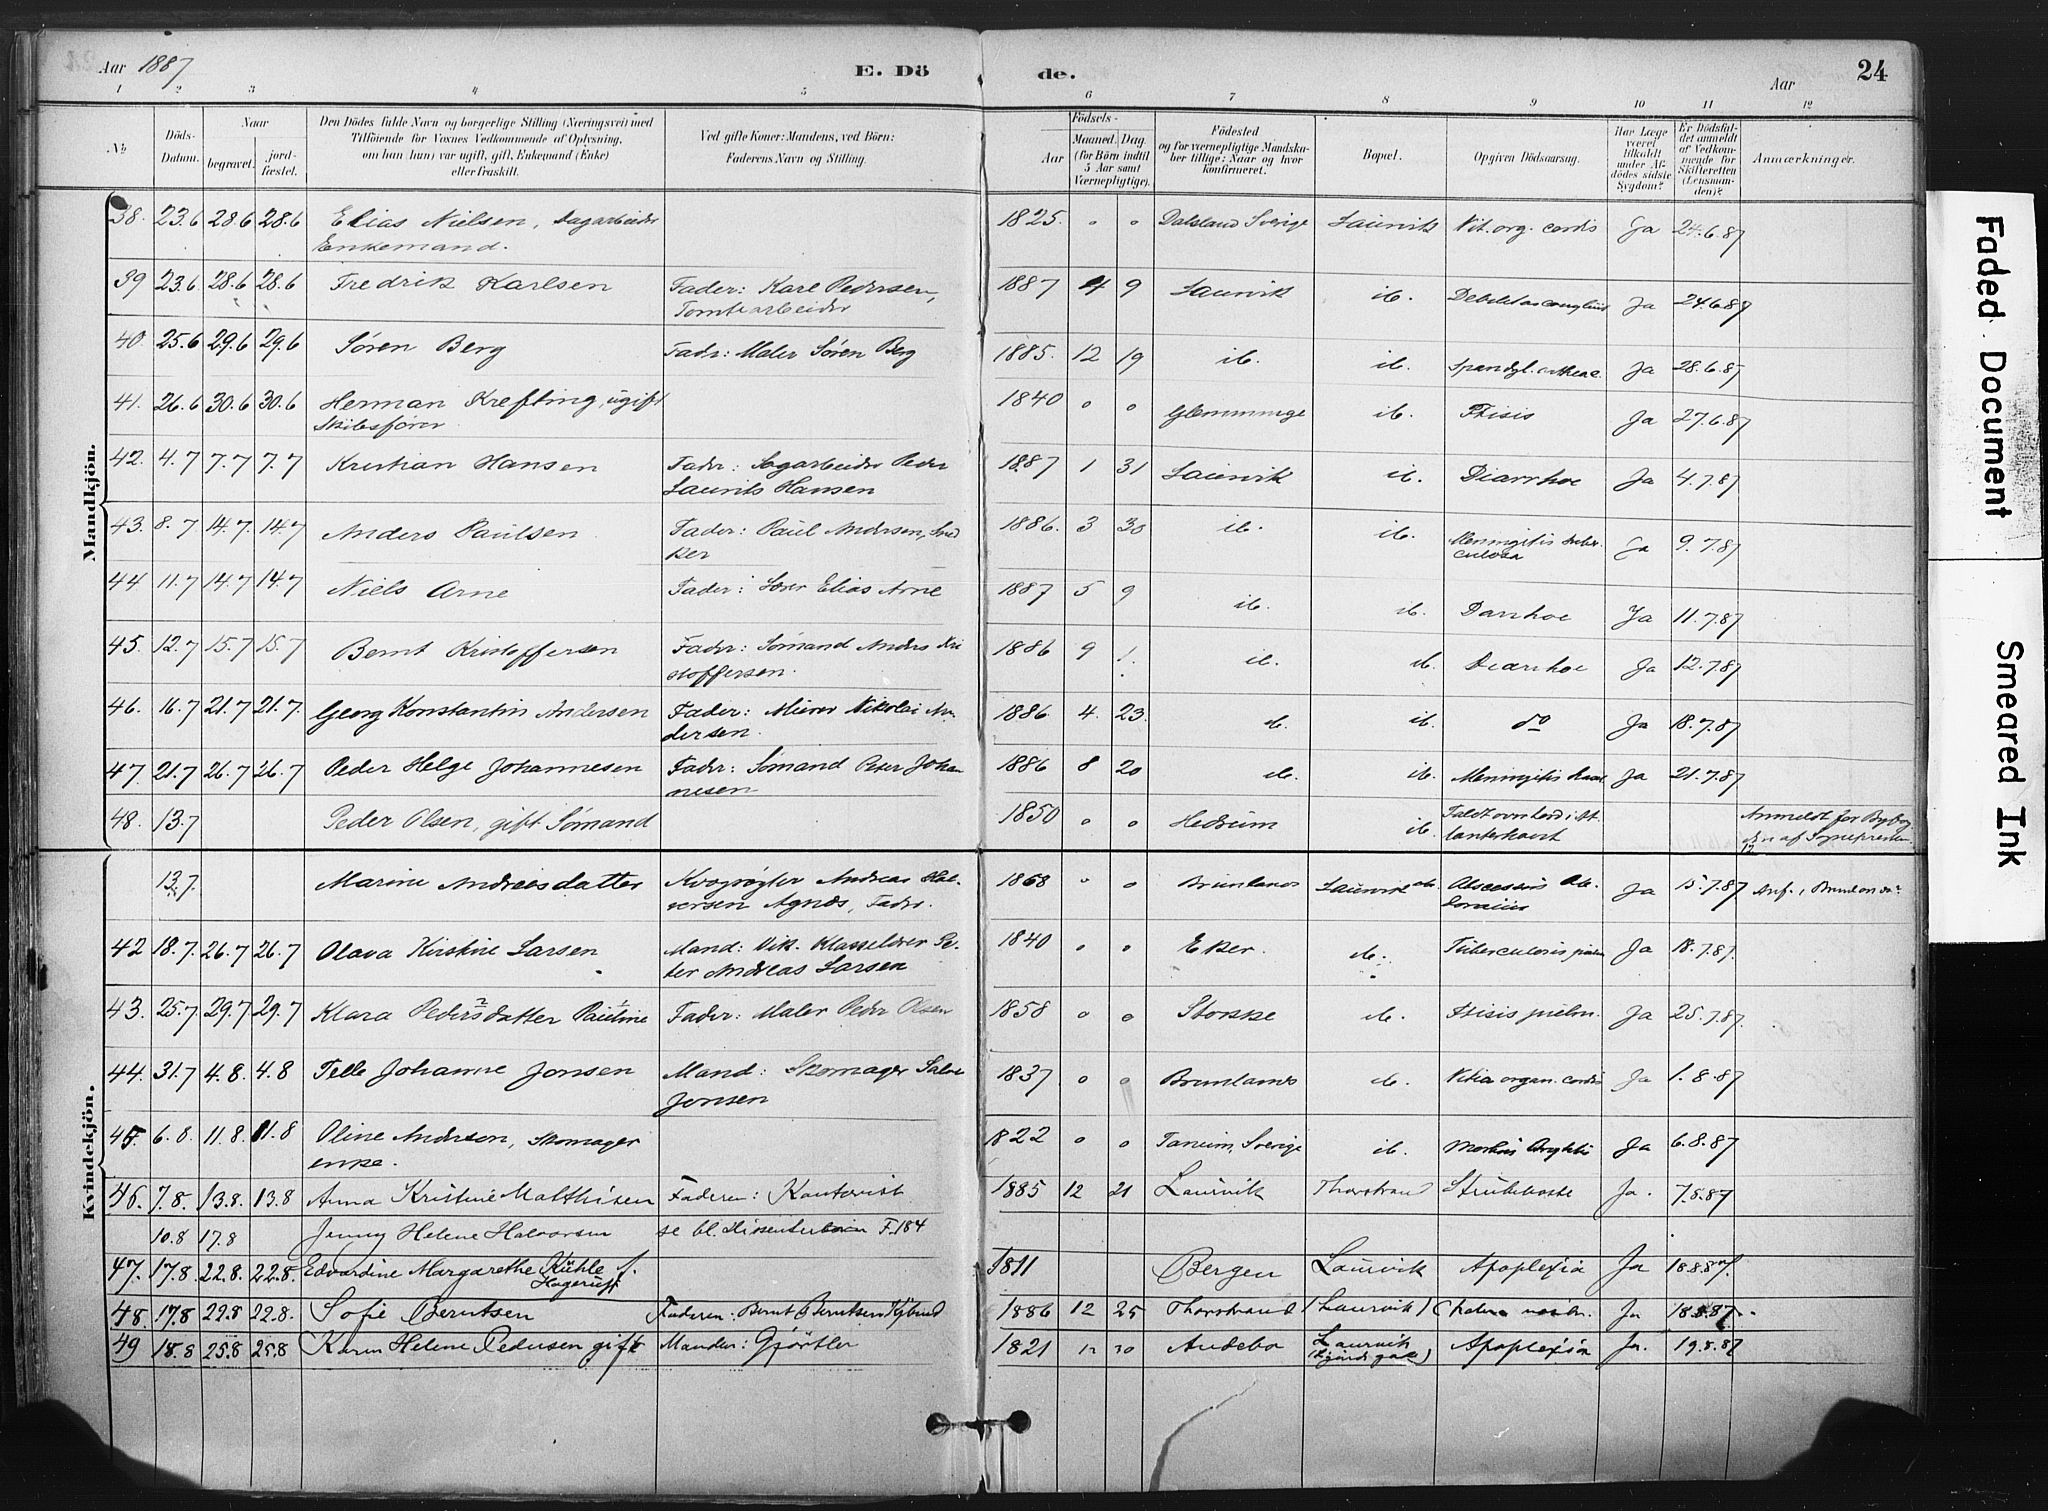 Aar 1887 E. Dö de. Aar 24
1 2 3 4 5 6 7 8 9 10 11 12
No Döds-Datum. Naar begravet. jord-fæstet. Den Dödes fulde Navn og borgerlige Stilling (Næringsvei) med Tilföiende for Voxnes Vedkommende af Oplysning, om han (hun) var ugift, gift, Enkemand (Enke) eller fraskilt. Ved gifte Koner: Mandens, ved Börn: Faderens Navn og Stilling. Födsels- Aar Maaned. Dag. (for Börn indtil 5 Aar samt Værnepligtige). Födested og for værnepligtige Mandskaber tillige: Naar og hvor konfirmeret. Bopæl. Opgiven Dödsaarsag. Har Læge været tilkaldt under Afdödes sidste Sygdom? Er Dödsfaldet anmeldt af Vedkommende for Skifteretten (Lensmanden)? Anmærkninger.
Mandkjön.
38. 23.6 28.6 28.6 Elias Nielsen, Dagarbeider 1825. o o Dalsland Sverige Laurvik Vit. org. cordis Ja 24.6.87
Enkemand.
39 23.6 28.6 28.6 Fredrik Karlsen Fader: Karl Pedersen, 1887 4 9 Laurvik ib. Ja 24.6.87
Tomtearbeider
40. 25.6 29.6 29.6 Søren Berg Fader: Maler Søren Berg 1885. 12 19 ib. ib. Ja 28.6.87
41. 26.6 30.6 30.6 Herman Krefting, ugift 1840 o o Glemminge ib. Ftisis Ja 27.6.87
Skibsfører
42. 4.7 7.7 7.7 Kristian Hansen Fader: Sagarbeider Peder 1887 1 31 Laurvik ib. Diarrhoe Ja 4.7.87
Laurits Hansen
43. 8.7 14.7. 14.7 Anders Paulsen Fader: Paul Andersen, Sned 1886. 3 30 ib. ib. Meningitis tuber- Ja 9.7.87
ker culosa
44 11.7 14.7 14.7 Niels Arne Fader: Elias Arne 1887 5 9 ib. ib. Diarrhoe Ja 11.7.87
45. 12.7 15.7 15.7 Bernt Kristoffersen Fader: Sømand Anders Kri 1886 9 1. ib. ib. Diarrhoe Ja 12.7.87
stoffersen.
46. 16.7 21.7 21.7. Georg Konstantin Andersen Fader: Murer Nikolai An- 1886. 4. 23. ib. ib. do Ja 18.7.87
dersen.
47. 21.7 26.7 26.7 Peder Helge Johannesen Fader: Sømand Peter Johan 1886 8 20 ib. ib. Meningitis Ja 21.7.87
nesen
48. 13.7 Peder Olsen, gift Sømand 1850 o o Hedrum ib. Faldt overbord Anmeldt for
af Sognepresten
Kvindekjön.
13.7. Marine Andreasdatter Andreas Hal- 1868 o o Brunlanes Laurvik Abscessus Ja 15.7.87
versen Agnes, Fader.
42 18.7. 26.7 26.7 Olava Kirstine Larsen Mand: Pe- 1840 o o Eker. ib. Tuberculosis Ja 18.7.87.
ter Andreas Larsen
43. 25.7 29.7 29.7 Klara Pedersdatter Pauline Fader: Maler Peder Olsen 1858 o o Stokke ib. Ftisis pulm. Ja 25.7.87.
44. 31.7 4.8. 4.8 Telle Johanne Jonsen Mand: Skomager 1837 o o Brunlanes ib. Vitia organ. cordis Ja 1.8.87
Jonsen
45. 6.8. 11.8. 11.8 Oline Andersen, Skomager 1822 o o Tanum, Sverige ib. Morbus Ja 6.8.87
enke.
46. 7.8. 13.8. 13.8 Anna Kristine Mathisen Faderen: Kontorist 1885 12 21 Laurvik Thorstrand Strubehoste Ja. 7.8.87
10.8 17.8 Jenny Helene Halvorsen se bl. Dissenterbörn F. 184
47. 17.8. 22.8. 22.8. Edvardine Margarethe Kühle f. 1811 Bergen Laurvik Apoplexia Ja 18.8.87.
Hagerup
48. 17.8 22.8 22.8. Sofie Berntsen Faderen: Bernt Berntsen 1886 12 25 Thorstrand (Laurvik) Ja 18.8.87.
49 18.8 25.8 25.8 Karen Helene Pedersen gift Manden: Gjørtler 1821 12 30 Andebo Laurvik Apoplexia Ja. 19.8.87
Faded Document
Smeared Ink